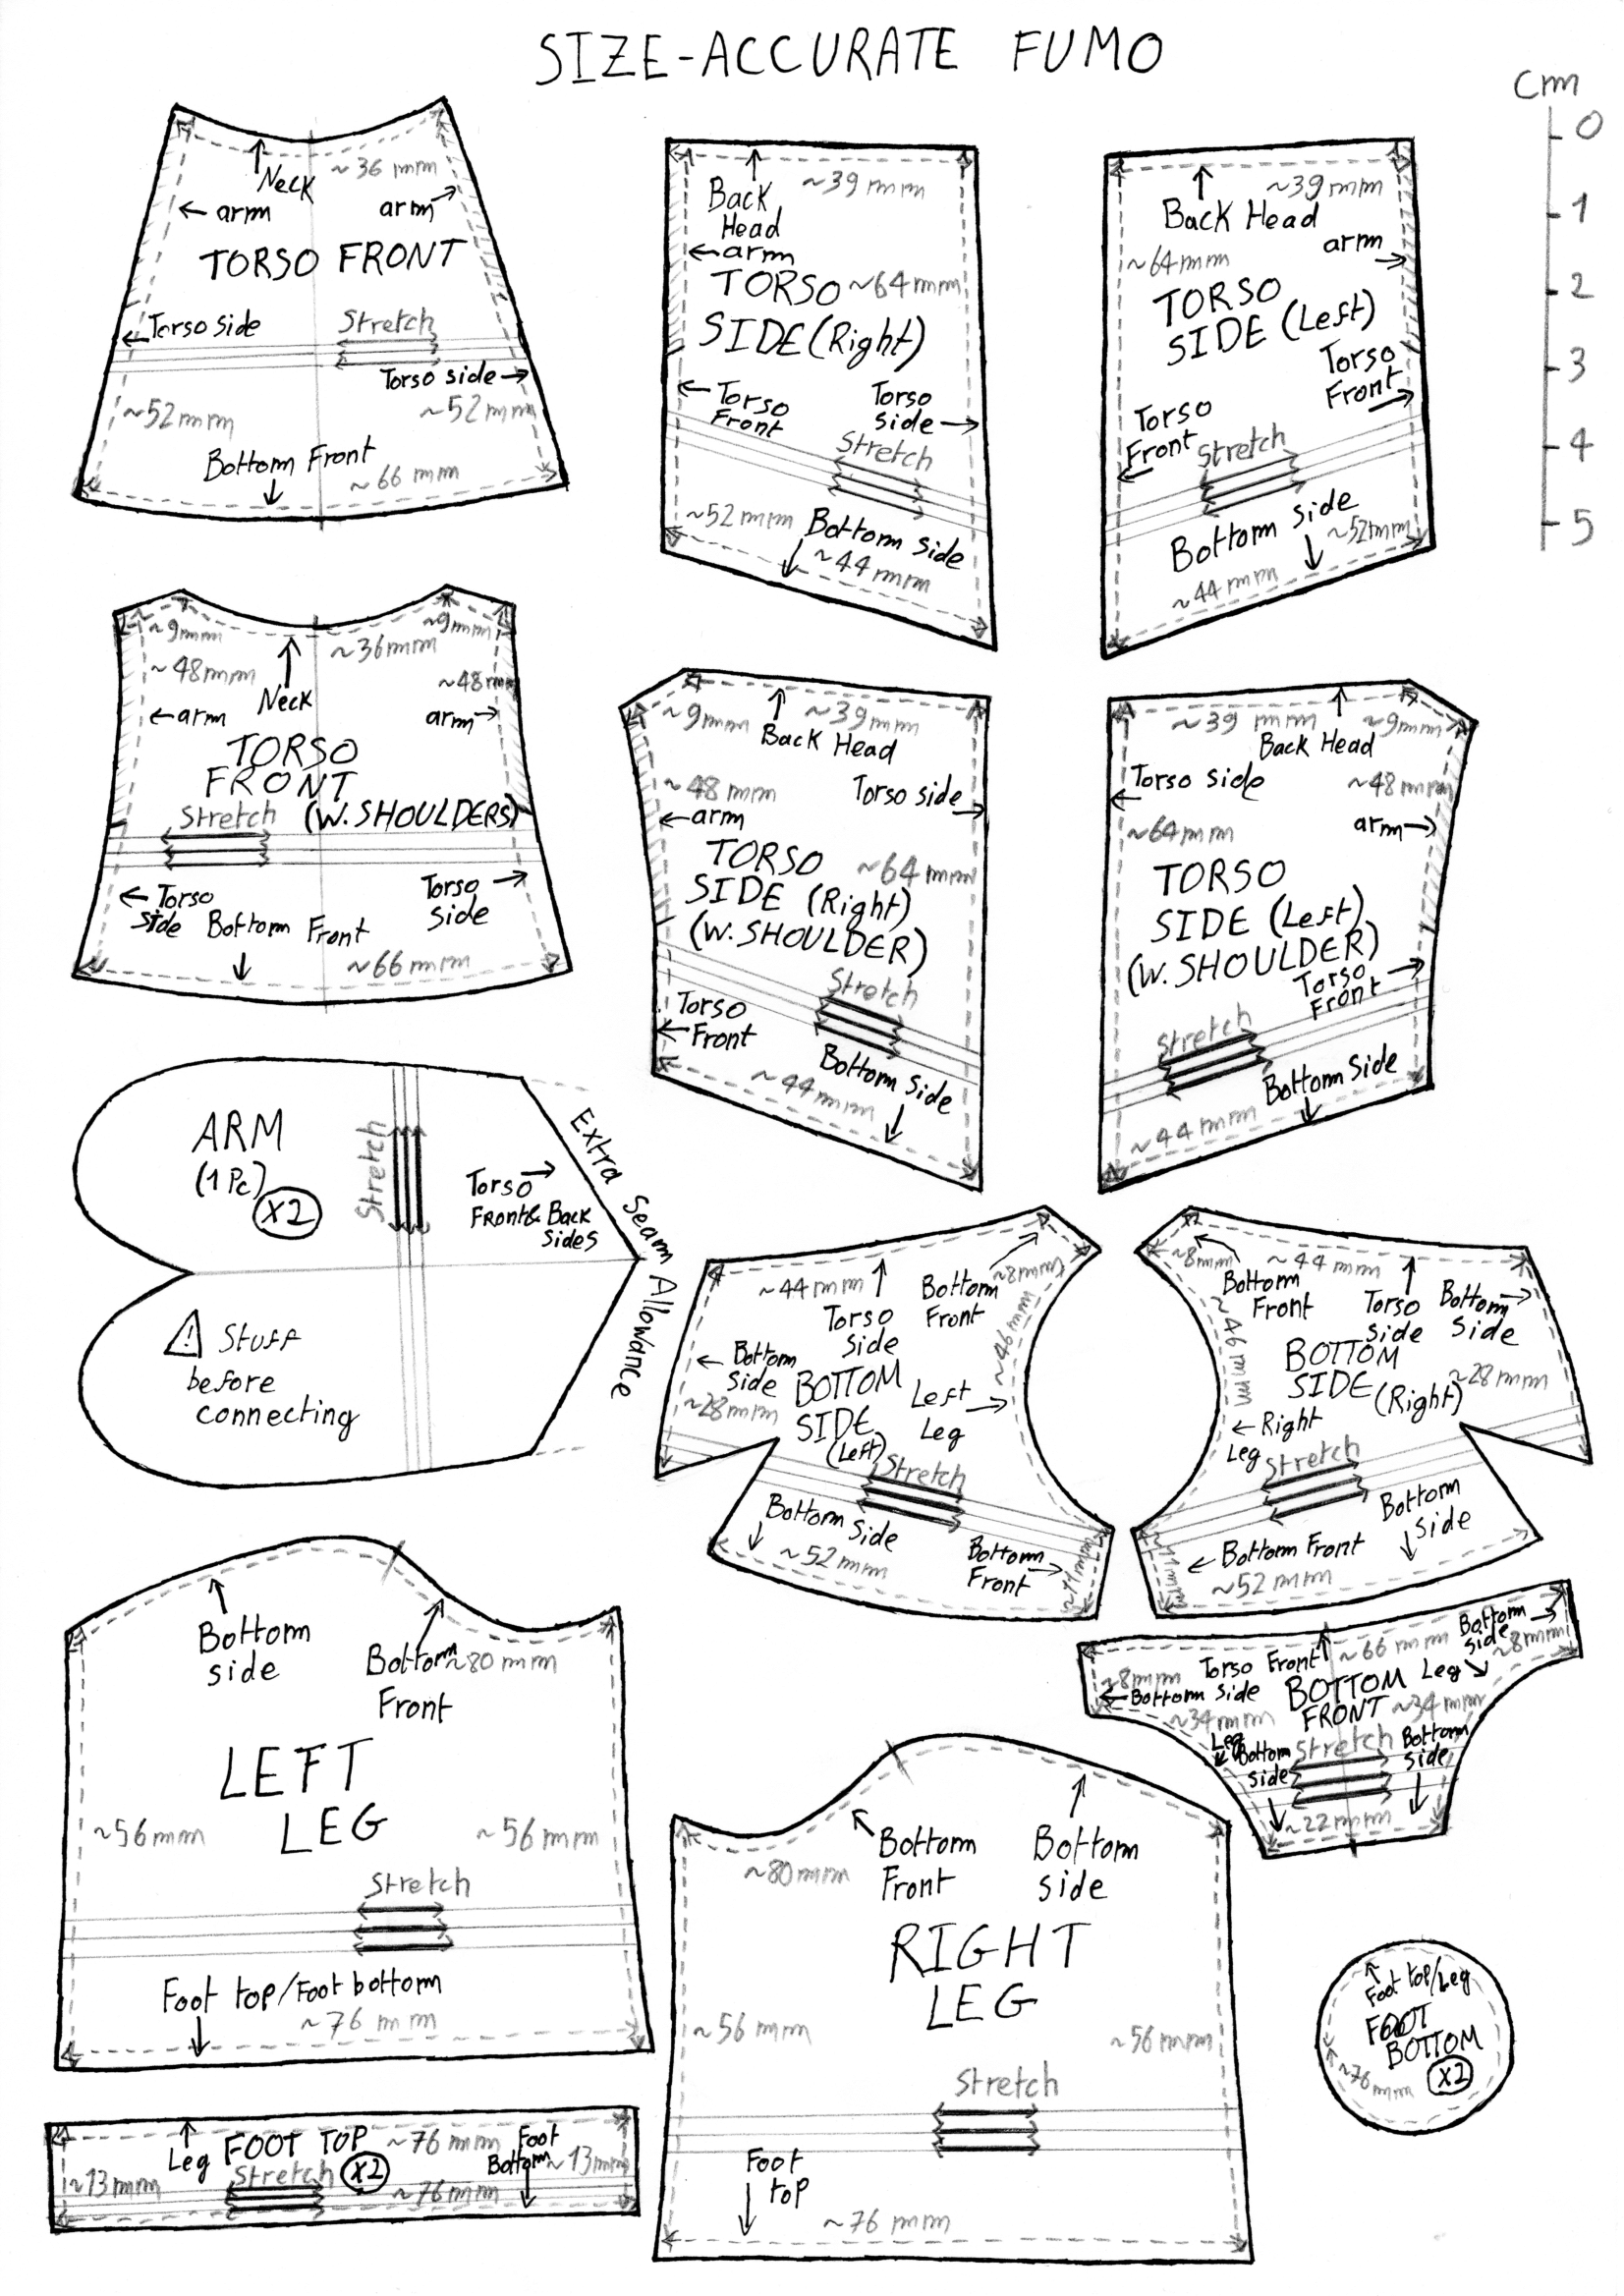 SIZE-ACCURATE FUMO
cm
0
1
2
3
4
5
Neck
~36 mm
← arm
arm →
TORSO FRONT
← Torso side
Stretch
Torso side →
~52mm
~52mm
Bottom Front
~66 mm
Back
Head
~39mm
← arm
TORSO
~64mm
SIDE (Right)
← Torso
Front
Torso
side →
Stretch
~52mm
Bottom side
~44mm
~39mm
Back Head
arm
~64mm
TORSO
SIDE (Left)
Torso
Front
Torso
Front
Stretch
Bottom side
~52mm
~44mm
~9mm
~9mm
~36mm
~48mm
Neck
~48mm
← arm
arm →
TORSO
FRONT
(W. SHOULDERS)
Stretch
← Torso
side
Torso
side
Bottom Front
~66mm
~9mm
~39mm
Back Head
~48mm
Torso side
← arm
TORSO
~64mm
SIDE (Right)
(W. SHOULDER)
Stretch
Torso
Front
Bottom side
~44mm
~39 mm
~9mm
Back Head
Torso side
~48mm
~64mm
arm →
TORSO
SIDE (Left)
(W. SHOULDER)
Torso
Front
Stretch
Bottom side
~44mm
ARM
(1 Pc)
X2
Stretch
Torso →
Front & Back
sides
Extra Seam Allowance
⚠ Stuff
before
connecting
~44mm
Bottom
Front
~8mm
Torso
side
~46mm
← Bottom
side
BOTTOM
SIDE
(Left)
~28mm
Left
Leg
Stretch
Bottom side
~52mm
Bottom
Front
~11mm
~8mm
~44mm
Bottom
Front
Torso
side
Bottom
side
~46mm
BOTTOM
SIDE (Right)
~28mm
← Right
Leg
Stretch
Bottom
side
← Bottom Front
~11mm
~52mm
Bottom
side
Bottom
Front
~80mm
LEFT
LEG
~56mm
~56mm
Stretch
Foot top/Foot bottom
~76 mm
~66mm
Bottom
side
~8mm
~8mm
Torso Front
← Bottom side
BOTTOM
FRONT
Leg
~34mm
~34mm
Leg
Bottom
side
Stretch
Bottom
side
~22mm
~80mm
Bottom
Front
Bottom
side
RIGHT
LEG
~56mm
~56mm
Stretch
Foot
top
~76 mm
Foot top/Leg
FOOT
BOTTOM
~76mm
X2
Leg
FOOT TOP
~76mm
Foot
Bottom
~13mm
~13mm
Stretch
X2
~76mm